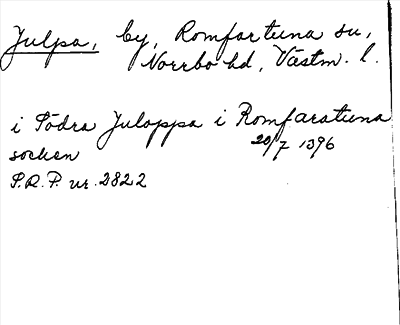 Julpa, by, Romfartuna sn,
Norrbo hd, Västm. l.
i Södra Juloppa i Romfaratuna
socken 20/7 1396
S.R.P. nr. 2822